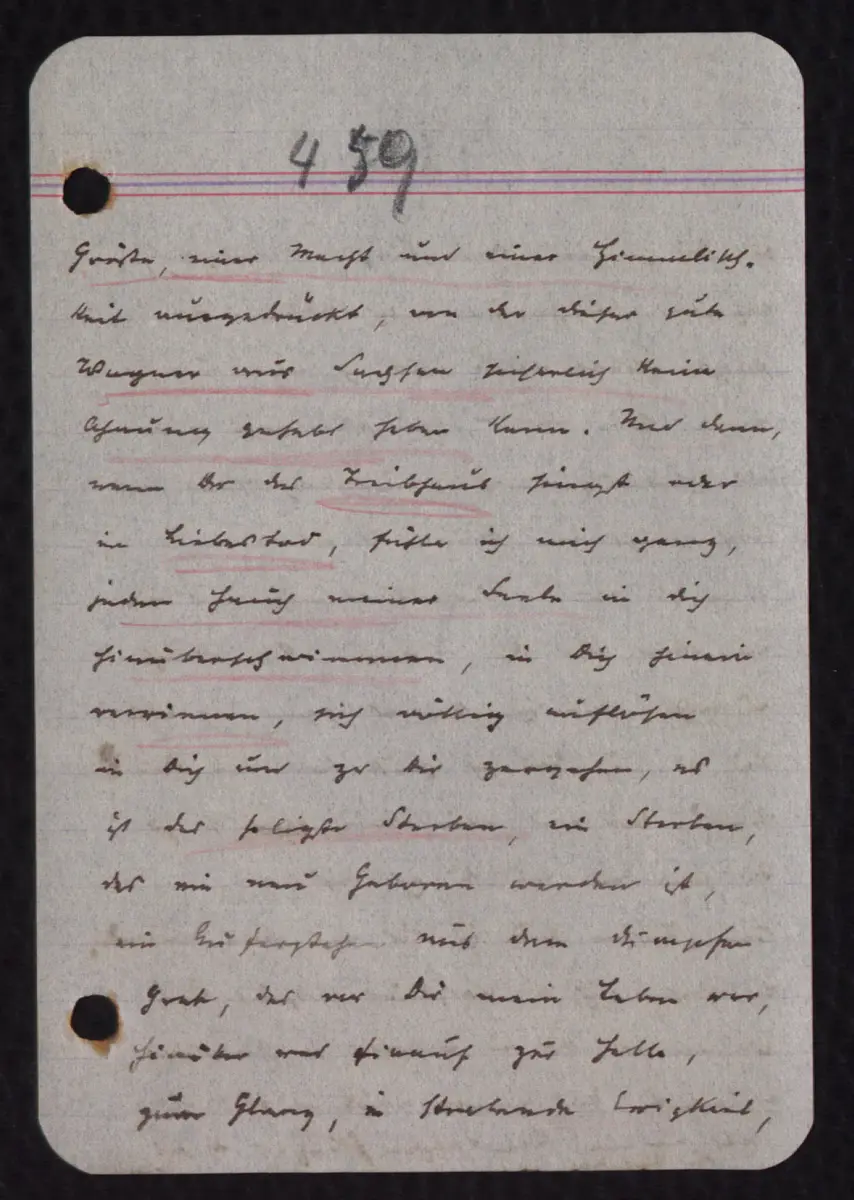 459
Größe, einer Macht und einer Himmelisch-
keit ausgedrückt, von der dieser gute
Wagner aus Sachsen sicherlich keine
Ahnung gehabt haben kann. Und dann,
wenn Du das Treibhaus singst oder
im Liebestod, fühle ich mich ganz,
jeden Hauch meiner Seele in dich
hinüberschwimmen, in Dich hinein
verrinnen, sich völlig auflösen
in Dich und zu Dir zergehen, es
ist das seligste Sterben, ein Sterben,
das ein neu Geboren werden ist,
ein Auferstehen aus dem dumpfen
Grab, das vor Dir mein Leben war,
hinüber und hinauf zur Helle,
zum Glanz, in strahlende Ewigkeit,